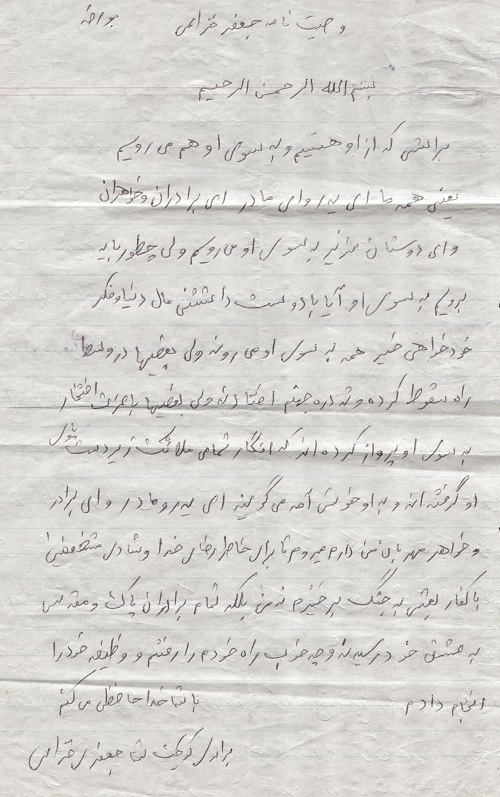 وصیت نامه جعفر خزاعی
بسم الله الرحمن الرحیم
که از او هستیم و به سوی او هم می رویم
یعنی همه ما ای پدر و ای مادر ای برادران و خواهران
و ای دوستان عزیز به سوی او می رویم ولی چطور باید
برویم به سوی او آیا با دوست داشتنی مال دنیا و فکر
خودخواهی خیر همه به سوی او می روند ولی بعضیها در وسط
راه سقوط کرده و به دره جهنم افتاده ولی بعضیها با عزت افتخار
به سوی او پرواز کرده اند که انگار تمامی ملائک زیر دست
او گرفته اند و به او خوش آمد می گویند ای پدر و مادر و ای برادر
و خواهر مهربان من دارم میروم تا برای خاطر رضای خدا و شادی مستضعفین
با کفار بعثی به جنگ برخیزم نه من بلکه تمام برادران پاک و مقدس
به عشق خود رسیدند و چه خوب راه خودم را رفتم و وظیفه خود را
انجام دادم با شما خداحافظی می کنم
برادر کوچک شما جعفر خزاعی